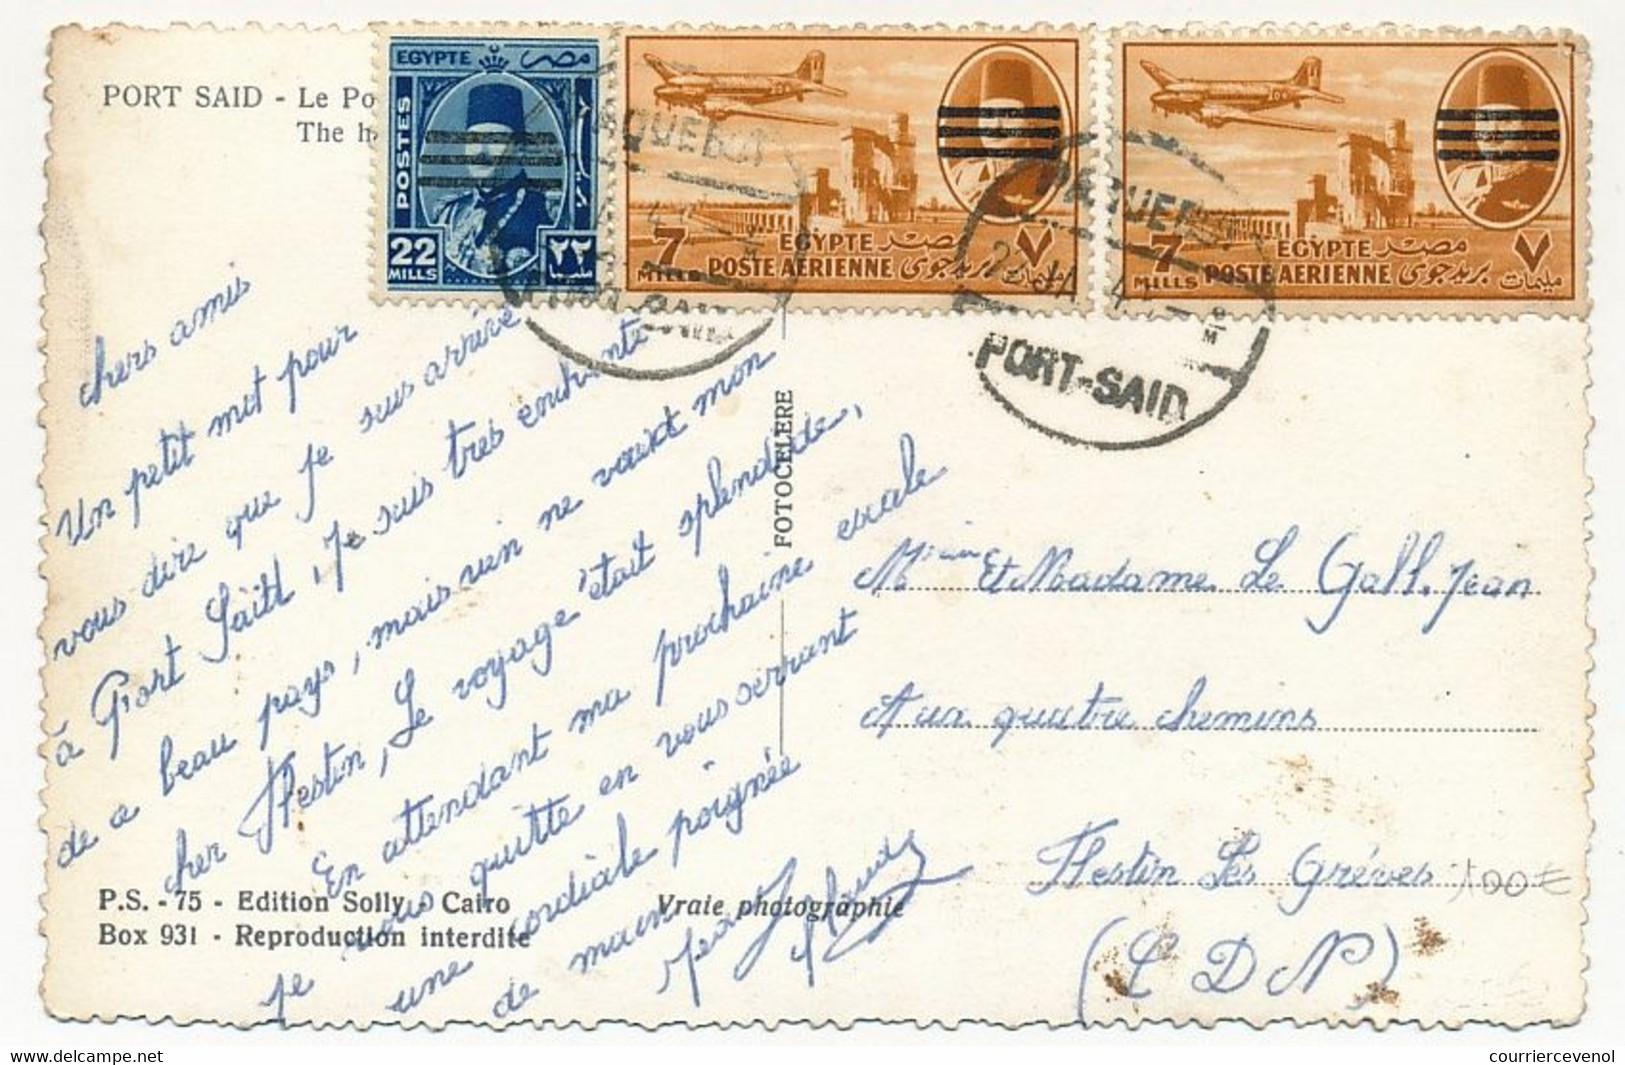 PORT SAID - Le Po
The h
EGYPTE مصر
POSTES
22 ٢٢
MILLS
7 EGYPTE مصر ٧
MILLS POSTE AERIENNE بريد جوى مليمات
7 EGYPTE مصر ٧
MILLS POSTE AERIENNE بريد جوى مليمات
PAQUEBOT
PAQUEBOT
PORT-SAID
chers amis
Un petit mot pour
vous dire que je suis arrivé
à Port Saïd, je suis très enchanté
de ce beau pays, mais rien ne vaut mon
cher Plestin, Le voyage était splendide,
En attendant ma prochaine escale
je vous quitte en vous serrant
une cordiale poignée
de main
Jean
FOTOCELERE
Et Madame Le Gall. Jean
Aux quatre chemins
Plestin Les Grèves
(C D N)
100€
P.S. - 75 - Edition Solly Cairo
Box 931 - Reproduction interdite
Vraie photographie
www.delcampe.net
courriercevenol